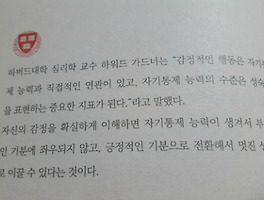 하버드대학 심리학 교수 하워드 가드너는 "감정적인 행동은 자기
제 능력과 직접적인 연관이 있고, 자기통제 능력의 수준은 성숙
을 표현하는 중요한 지표가 된다."라고 말했다.
자신의 감정을 확실하게 이해하면 자기통제 능력이 생겨서 부
인 기분에 좌우되지 않고, 긍정적인 기분으로 전환해서 멋진
로 이끌 수 있다는 것이다.